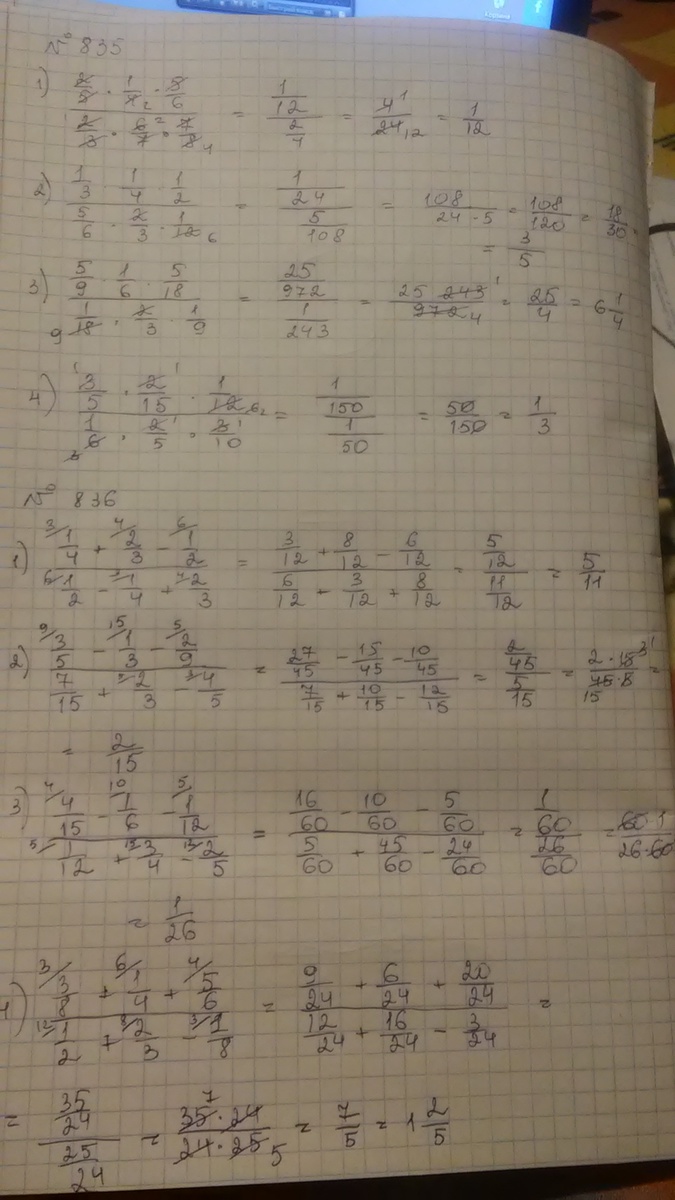 № 835
1) (2/5 · 1/4 2 · 5/6) / (2/3 · 6/7 2 · 7/8 4) = (1/12) / (2/4) = 4 1 / 24 12 = 1/12
2) (1/3 · 1/4 · 1/2) / (5/6 · 2/3 · 1/12 6) = (1/24) / (5/108) = 108 / 24 · 5 = 108/120 = 18/30 =
= 3/5
3) (5/9 · 1/6 · 5/18) / (1/18 9 · 2/3 · 1/9) = (25/972) / (1/243) = 25 · 243 1 / 972 4 = 25/4 = 6 1/4
4) (3 1 / 5 · 2 1 / 15 · 1/12 6 2) / (1/6 3 · 2 1 / 5 · 3 1 / 10) = (1/150) / (1/50) = 50/150 = 1/3
№ 836
1) (3/ 1/4 + 4/ 2/3 − 6/ 1/2) / (6/ 1/2 − 3/ 1/4 + 4/ 2/3) = (3/12 + 8/12 − 6/12) / (6/12 + 3/12 + 8/12) = (5/12) / (11/12) = 5/11
2) (9/ 3/5 − 15/ 1/3 − 5/ 2/9) / (7/15 + 5/ 2/3 − 3/ 4/5) = (27/45 − 15/45 − 10/45) / (7/15 + 10/15 − 12/15) = (2/45) / (5/15) = 2 · 15 3 1 / 45 · 5 15 =
= 2/15
3) (4/ 4/15 − 10/ 1/6 − 5/ 1/12) / (5/ 1/12 + 15/ 3/4 − 12/ 2/5) = (16/60 − 10/60 − 5/60) / (5/60 + 45/60 − 24/60) = (1/60) / (26/60) = 60 · 1 / 26 · 60
= 1/26
4) (3/ 3/8 + 6/ 1/4 + 4/ 5/6) / (12/ 1/2 + 8/ 2/3 − 3/ 1/8) = (9/24 + 6/24 + 20/24) / (12/24 + 16/24 − 3/24) =
= (35/24) / (25/24) = 35 7 · 24 / 24 · 25 5 = 7/5 = 1 2/5